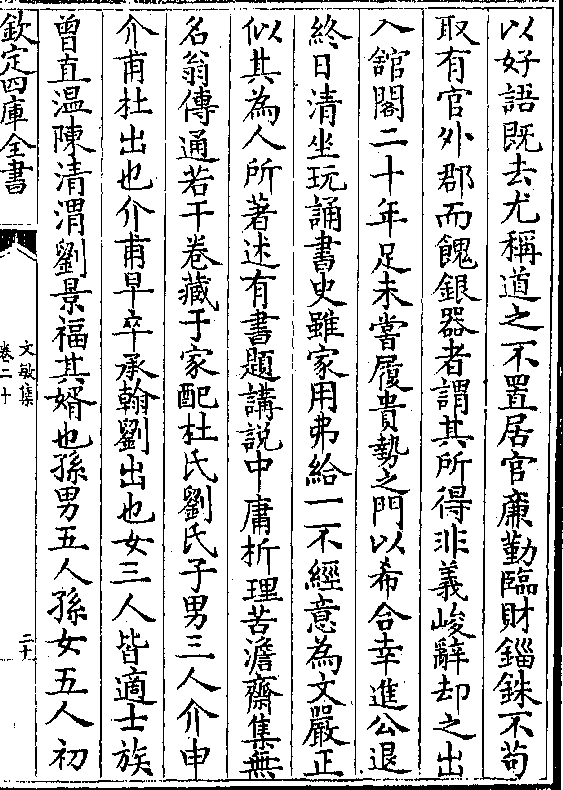 以好語既去尤稱道之不置居官亷勤臨財錙銖不茍
取有官外郡而餽銀器者謂其所得非義峻辭却之出
入舘閣二十年足未嘗履貴勢之門以希合幸進公退
終日清坐玩誦書史雖家用弗給一不經意為文嚴正
似其為人所著述有書題講說中庸析理苦澹齋集無
名翁傳通若干卷藏于家配杜氏劉氏子男三人介申
介甫杜出也介甫早卒承翰劉出也女三人皆適士族
曾直温陳清渭劉景福其婿也孫男五人孫女五人初
欽定四庫全書
文敏集
卷二十
二十